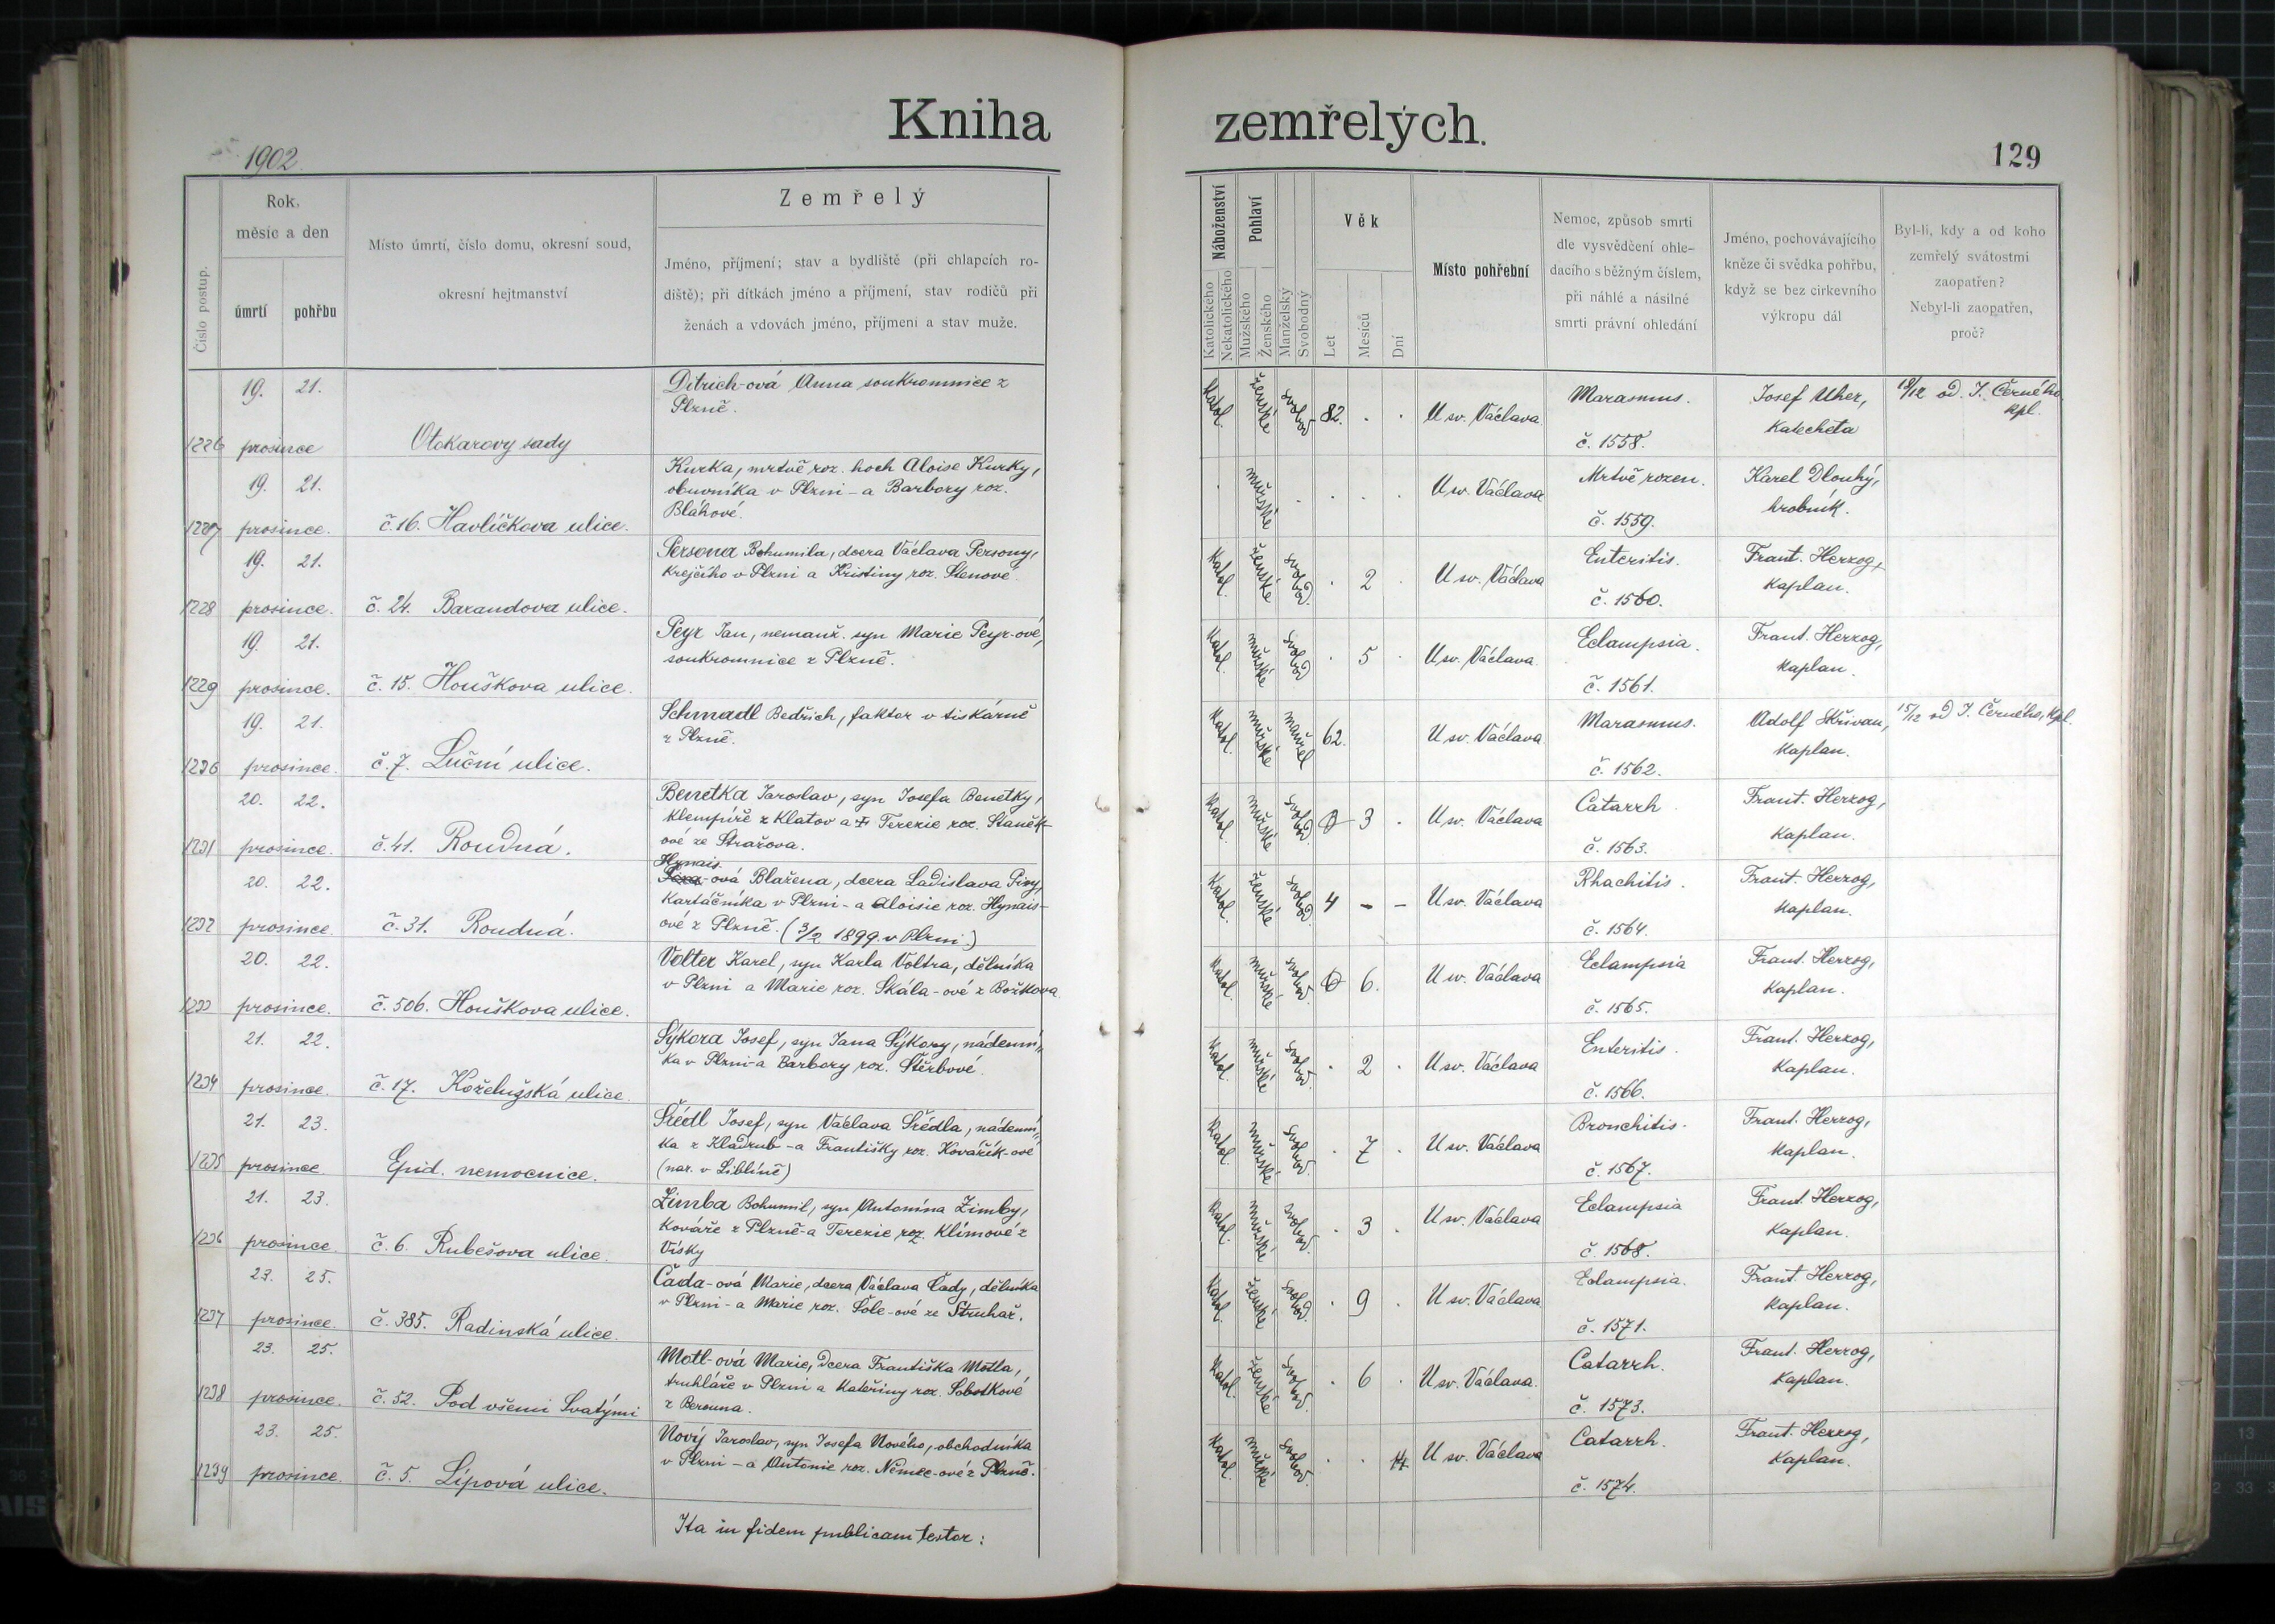 Kniha
zemřelých.
1902.
129
Číslo postup.
Rok,
měsíc a den
úmrtí
pohřbu
Místo úmrtí, číslo domu, okresní soud,
okresní hejtmanství
Zemřelý
Jméno, příjmení; stav a bydliště (při chlapcích ro-
diště); při dítkách jméno a příjmení, stav rodičů při
ženách a vdovách jméno, příjmení a stav muže.
Náboženství
Katolického
Nekatolického
Pohlaví
Mužského
Ženského
Manželský
Svobodný
Věk
Let
Mesíců
Dní
Místo pohřební
Nemoc, způsob smrti
dle vysvědčení ohle-
dacího s běžným číslem,
při náhlé a násilné
smrti právní ohledání
Jméno, pochovávajícího
kněze či svědka pohřbu,
když se bez cirkevního
výkropu dál
Byl-li, kdy a od koho
zemřelý svátostmi
zaopatřen?
Nebyl-li zaopatřen,
proč?
1226 19. 21. prosince
Otokarovy sady
Ditrich-ová Anna soukromnice z
Plzně.
Katol. ženské svobod 82. . .
U sv. Václava
Marasmus.
č. 1558.
Josef Uher,
Katecheta
18/12 od J. Černého
kpl.
1227 19. 21. prosince.
č. 16. Havlíčkova ulice.
Kurka, mrtvě roz. hoch Aloise Kurky,
obuvníka v Plzni - a Barbory roz.
Bláhové.
. mužské . . . .
U sv. Václava
Mrtvě rozen.
č. 1559.
Karel Dlouhý,
hrobník.
1228 19. 21. prosince.
č. 24. Barandova ulice.
Persona Bohumila, dcera Václava Persony,
Krejčího v Plzni a Kristiny roz. Stenové.
Katol. ženské svobod. . 2 .
U sv. Václava
Enteritis.
č. 1560.
Frant. Herzog,
Kaplan.
1229 19. 21. prosince.
č. 15. Houškova ulice.
Peyr Jan, nemanž. syn Marie Peyr-ové,
soukromnice z Plzně.
Katol. mužské svobod . 5 .
U sv. Václava.
Eclampsia.
č. 1561.
Frant. Herzog,
Kaplan.
1230 19. 21. prosince.
č. 7. Luční ulice.
Schmadl Bedřich, faktor v tiskárně
z Plzně.
Katol. mužské manžel 62.
U sv. Václava
Marasmus.
č. 1562.
Adolf Skřivan,
Kaplan.
15/12 od J. Černého, kpl.
1231 20. 22. prosince.
č. 41. Roudná.
Benetka Jaroslav, syn Josefa Benetky,
Klempíře z Klatov a Terezie roz. Staněk-
ové ze Stražova.
Katol. mužské svobod 0 3 .
U sv. Václava
Catarrh
č. 1563.
Frant. Herzog,
Kaplan.
1232 20. 22. prosince.
č. 31. Roudná.
Hynais
-ová Blažena, dcera Ladislava Pivy,
Kartáčníka v Plzni - a Aloisie roz. Hynais-
ové z Plzně. (3/2 1899. v Plzni.)
Katol. ženské svobod 4 - -
U sv. Václava
Rhachitis.
č. 1564.
Frant. Herzog,
Kaplan.
1233 20. 22. prosince.
č. 506. Houškova ulice.
Volter Karel, syn Karla Voltra, dělníka
v Plzni a Marie roz. Skála-ové z Božkova
Katol. mužské svobod. 0 6.
U sv. Václava
Eclampsia
č. 1565.
Frant. Herzog,
Kaplan.
1234 21. 22. prosince.
č. 17. Koželužská ulice.
Sýkora Josef, syn Jana Sýkory, nádenní„
ka v Plzni - a Barbory roz. Štěrbové.
Katol. mužské svobod. . 2 .
U sv. Václava
Enteritis.
č. 1566.
Frant. Herzog,
Kaplan.
1235 21. 23. prosince
Epid. nemocnice.
Štédl Josef, syn Václava Štédla, nádenní„
ka z Kladrub - a Františky roz. Kovářík-ové
(nar. v Liblíně)
Katol. mužské svobod. . 7 .
U sv. Václava
Bronchitis.
č. 1567.
Frant. Herzog,
Kaplan.
1236 21. 23. prosince.
č. 6. Rubešova ulice.
Zimba Bohumil, syn Antonína Zimby,
Kováře z Plzně - a Terezie roz. Klímové z
Vísky
Katol. mužské svobod. . 3 .
U sv. Václava
Eclampsia
č. 1568.
Frant. Herzog,
Kaplan.
1237 23. 25. prosince.
č. 385. Radinská ulice.
Čada-ová Marie, dcera Václava Čady, dělníka
v Plzni - a Marie roz. Šole-ové ze Struhař.
Katol. ženské svobod. . 9 .
U sv. Václava
Eclampsia.
č. 1571.
Frant. Herzog,
Kaplan.
1238 23. 25. prosince.
č. 52. Pod všemi Svatými
Motl-ová Marie, dcera Františka Motla,
truhláře v Plzni a Kateřiny roz. Sobotkové
z Berouna.
Katol. ženské svobod. . 6 .
U sv. Václava.
Catarrh.
č. 1573.
Frant. Herzog,
Kaplan.
1239 23. 25. prosince.
č. 5. Lípová ulice.
Nový Jaroslav, syn Josefa Nového, obchodníka
v Plzni - a Antonie roz. Němec-ové z Plzně.
Katol. mužské svobod. . . 14
U sv. Václava
Catarrh.
č. 1574.
Frant. Herzog,
Kaplan.
Ita in fidem publicam testor: